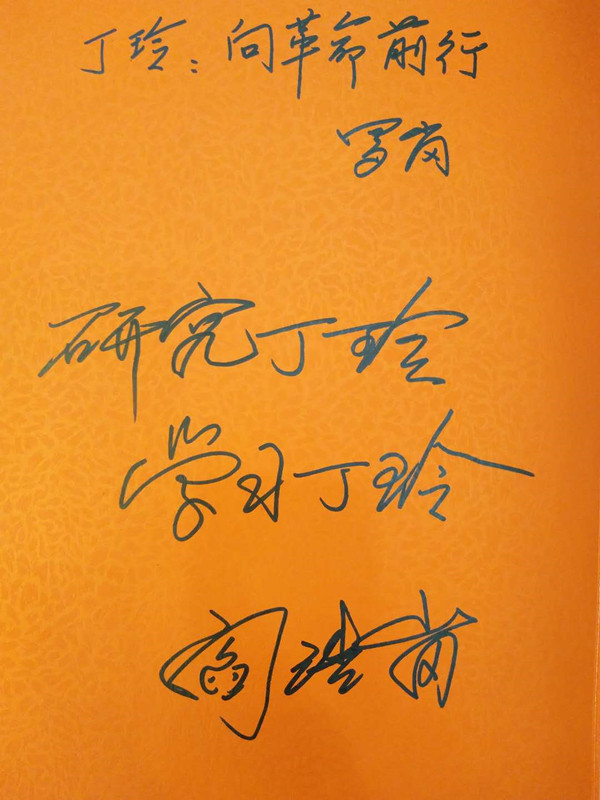 丁玲：向革命前行
罗岗
研究丁玲
学习丁玲
阎浩岗